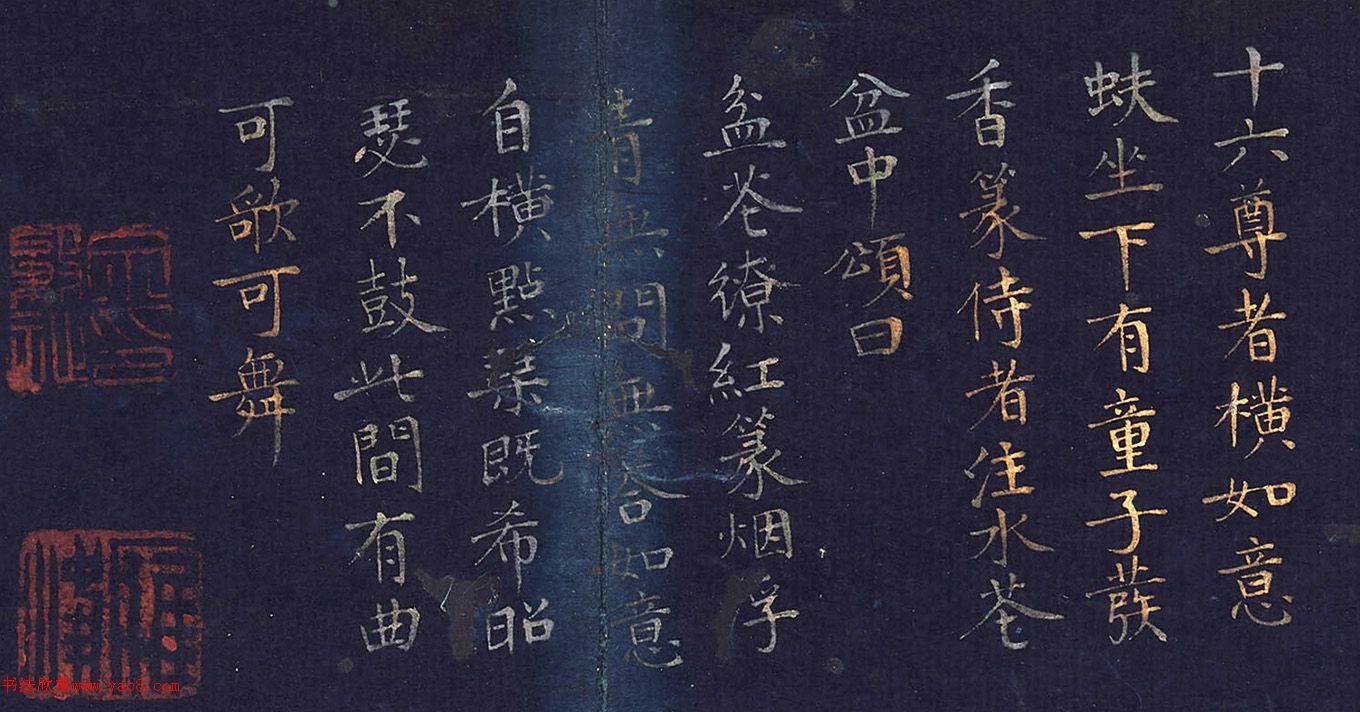 十六尊者橫如意
趺坐下有童子蕟
香篆侍者注水苍
盆中頌曰
盆苍繚紅篆烟浮
青無問無答如意
自橫點琹既希昭
瑟不鼓此間有曲
可歌可舞
书法欣赏www.yac8.com